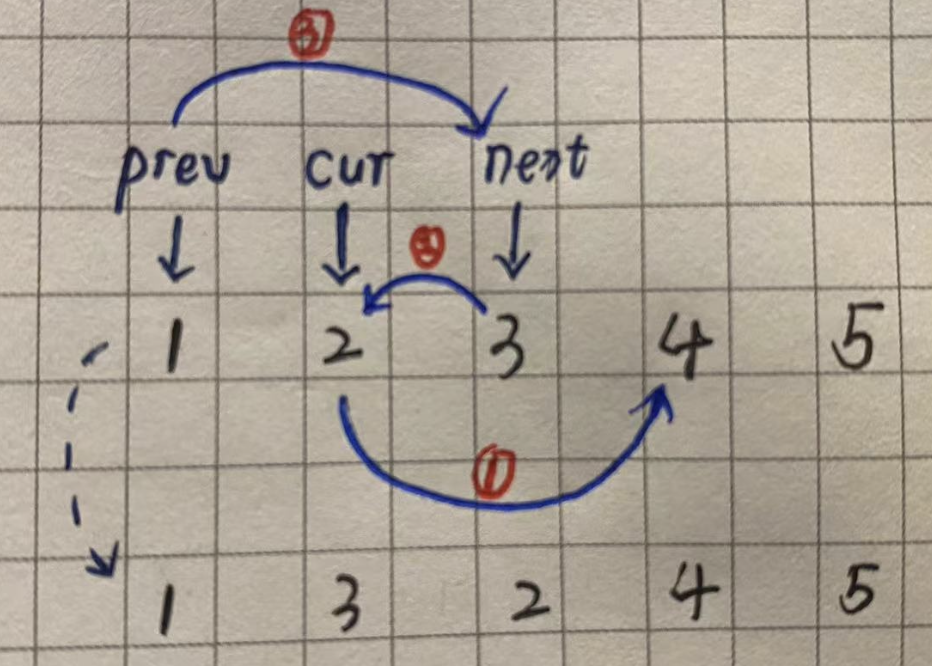 ③
prev cur next
②
1 2 3 4 5
①
1 3 2 4 5